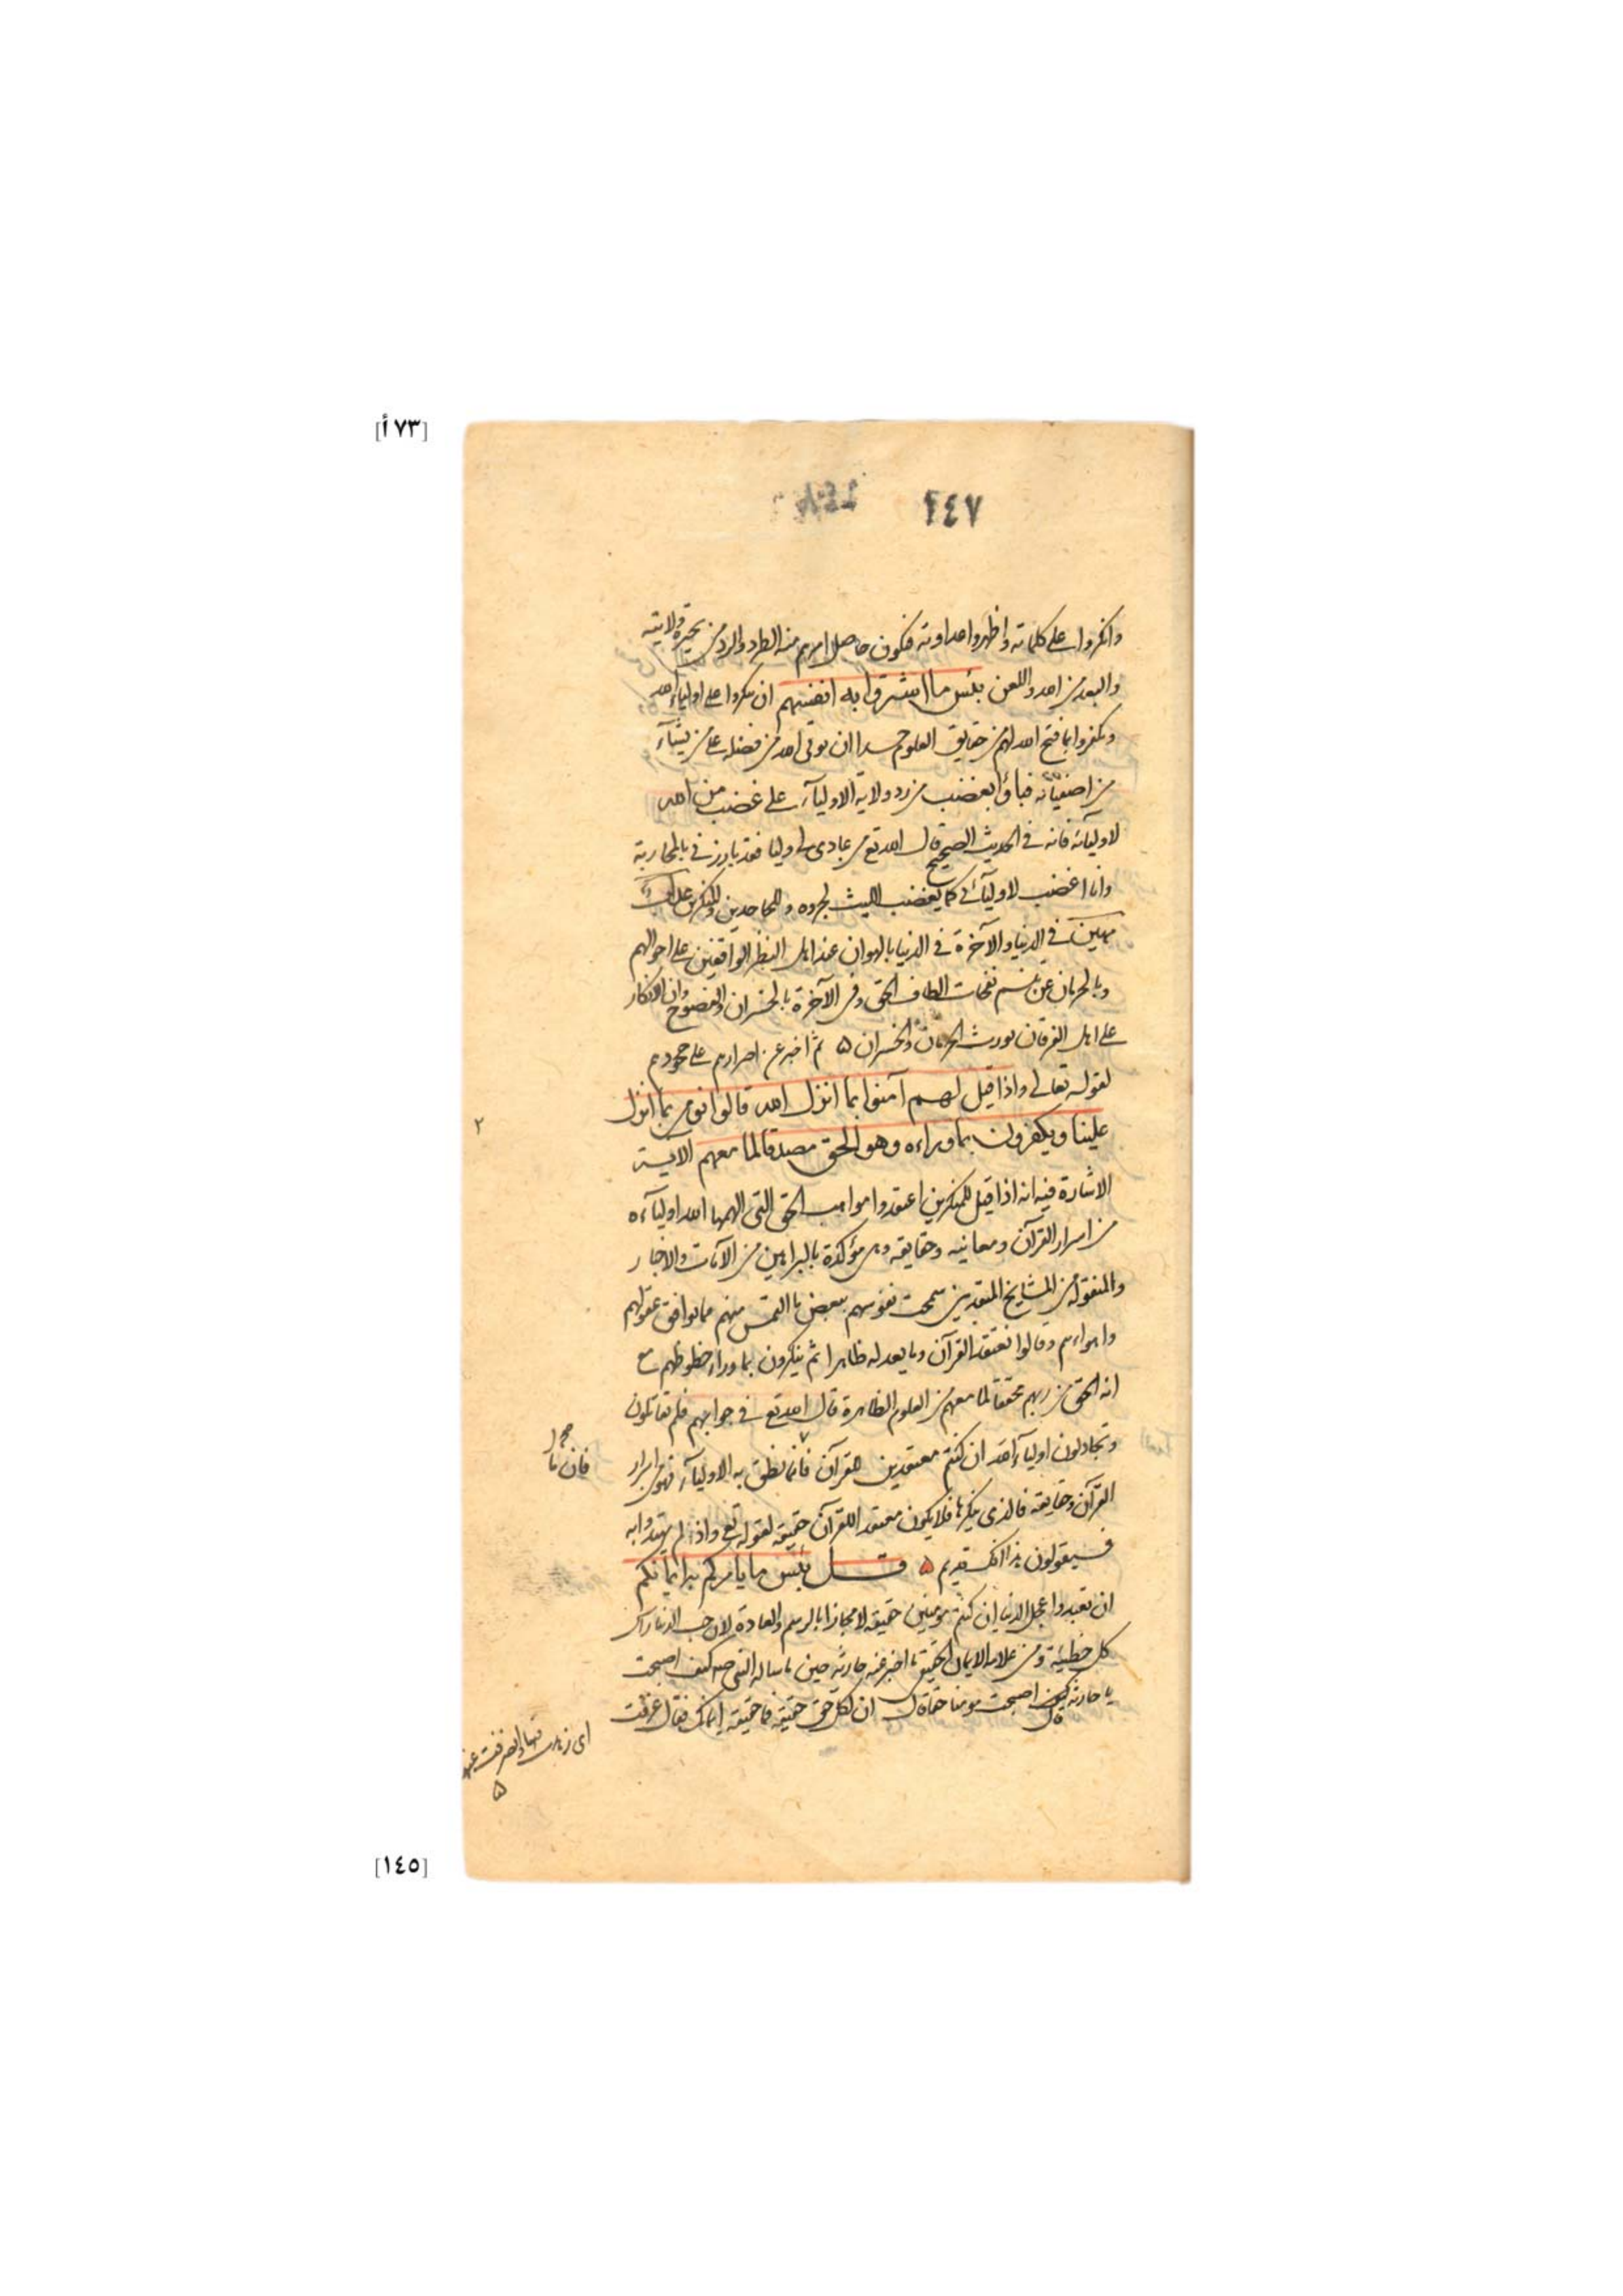 [٧٣ أ]
٢٤٧
وانكروا على كلماته واظهروا عداوته فيكون حاصل امرهم منه الطرد والرد من بحيرة ولايته
والبعد من الله واللعن بئس ما اشتروا به انفسهم ان ينكروا على اولياء الله
ويكفروا بما فتح الله لهم من حقايق العلوم حسدا ان يوتى الله من فضله على من يشآء
من اصفيائه فباؤا بغضب من رد ولاية الاوليآء على غضب من الله
لاوليائه فانه في الحديث الصحيح قال الله تع من عادى لى وليا فقد بارزني بالمحاربة
وانا اغضب لاوليآئى كما يغضب الليث لجروه وللجاحدين والمنكرين عذاب
مهين في الدنيا والآخرة في الدنيا بالهوان عند اهل النظر الواقفين على احوالهم
وبالحرمان عن تنسم نفحات الطاف الحق وفى الآخرة بالخسران والفضوح وان الانكار
على اهل العرفان يورث الحرمان والخسران ۵ ثم اخبر عن اصرارهم على جحودهم
لقوله تعالى واذا قيل لهم آمنوا بما انزل الله قالوا نؤمن بما انزل
علينا ويكفرون بما وراءه وهو الحق مصدقا لما معهم الآية
٢
الاشارة فيه انه اذا قيل للمنكرين اعتقدوا مواهب الحق التى الهمها الله اوليآءه
من اسرار القرآن ومعانيه وحقايقه وهى مؤكدة بالبراهين من الآيات والاخبار
والمنقولة من المشايخ المتقدمين سمحت نفوسهم ببعض ما التمس منهم مما يوافق عقولهم
واهواءهم وقالوا نعتقد القرآن وما يعدله ظاهرا ثم ينكرون بما وراء حظوظهم مع
انه الحق من ربهم محققا لما معهم من العلوم الظاهرة قال الله تع في جوابهم فلم تقاتلون
وتجادلون اوليآء الله ان كنتم معتقدين القرآن فانما نطق به الاوليآء فهو اسرار
فان ما
القرآن وحقايقه فالذى ينكرها فلا يكون معتقدا للقرآن حقيقة لقوله تع واذ لم يهتدوا به
فسيقولون هذا افك قديم ۵ قل بئس ما يامركم به ايمانكم
ان تعبدوا عجل الدنيا ان كنتم مؤمنين حقيقة لا مجازا بالرسم والعادة لان حب الدنيا راس
كل خطيئة ومن علامة الايمان الحقيقى ما اخبر عنه حارثة حين ما ساله النبى صلعم كيف اصبحت
يا حارثة قال اصبحت مومنا حقا قال ان لكل حق حقيقة فما حقيقة ايمانك فقال عزفت
اى زهدت فيها وانصرفت عنها
۵
[١٤٥]